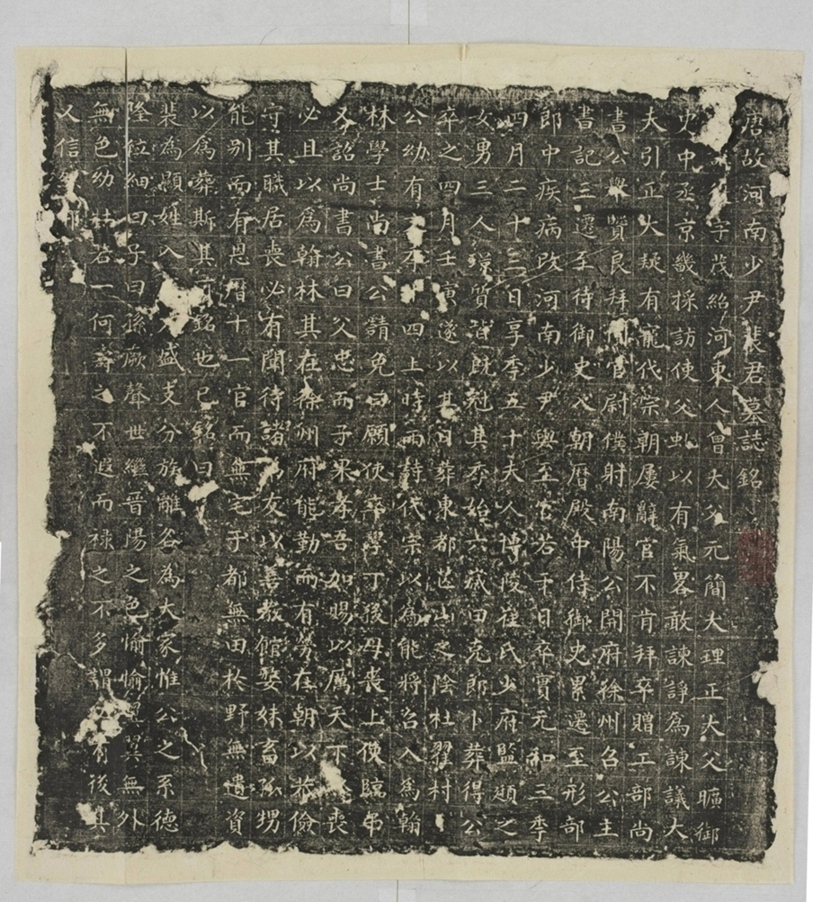 唐故河南少尹裴君墓誌銘
字茂紹河東人曾大父元簡大理正大父曠御
史中丞京畿採訪使父虬以有氣畧敢諫諍為諫議大
夫引正大疑有寵代宗朝屢辭官不肯拜卒贈工部尚
書公舉賢良拜同官尉僕射南陽公開府徐州召公主
書記三遷至侍御史入朝曆殿中侍御史累遷至刑部
郎中疾病改河南少尹輿至官若干日卒實元和三季
四月二十三日享季五十夫人博陵崔氏少府監頲之
女男三人璟質皆既冠其季始六歲曰充郎卜葬得公
卒之四月壬寅遂以其日葬東都芒山之陰杜翟村
公幼有文年十四上時雨詩代宗以為能將召入為翰
林學士尚書公請免曰願使卒學丁後母喪上使臨弔
又詔尚書公曰父忠而子果孝吾加賜以厲天下喪
必且以為翰林其在徐州府能勤而有勞在朝以恭儉
守其職居喪必有聞待諸弟友以善教館嫠妹畜孤甥
能別而有恩曆十一官而無宅于都無田於野無遺資
以為葬斯其可銘也已銘曰
裴為顯姓入盛支分族離各為大家惟公之系德
隆位細曰子曰孫厥聲世繼晉陽之色愉愉翼翼無外
無色幼壯若一何壽之不遐而祿之不多謂有後其
又信